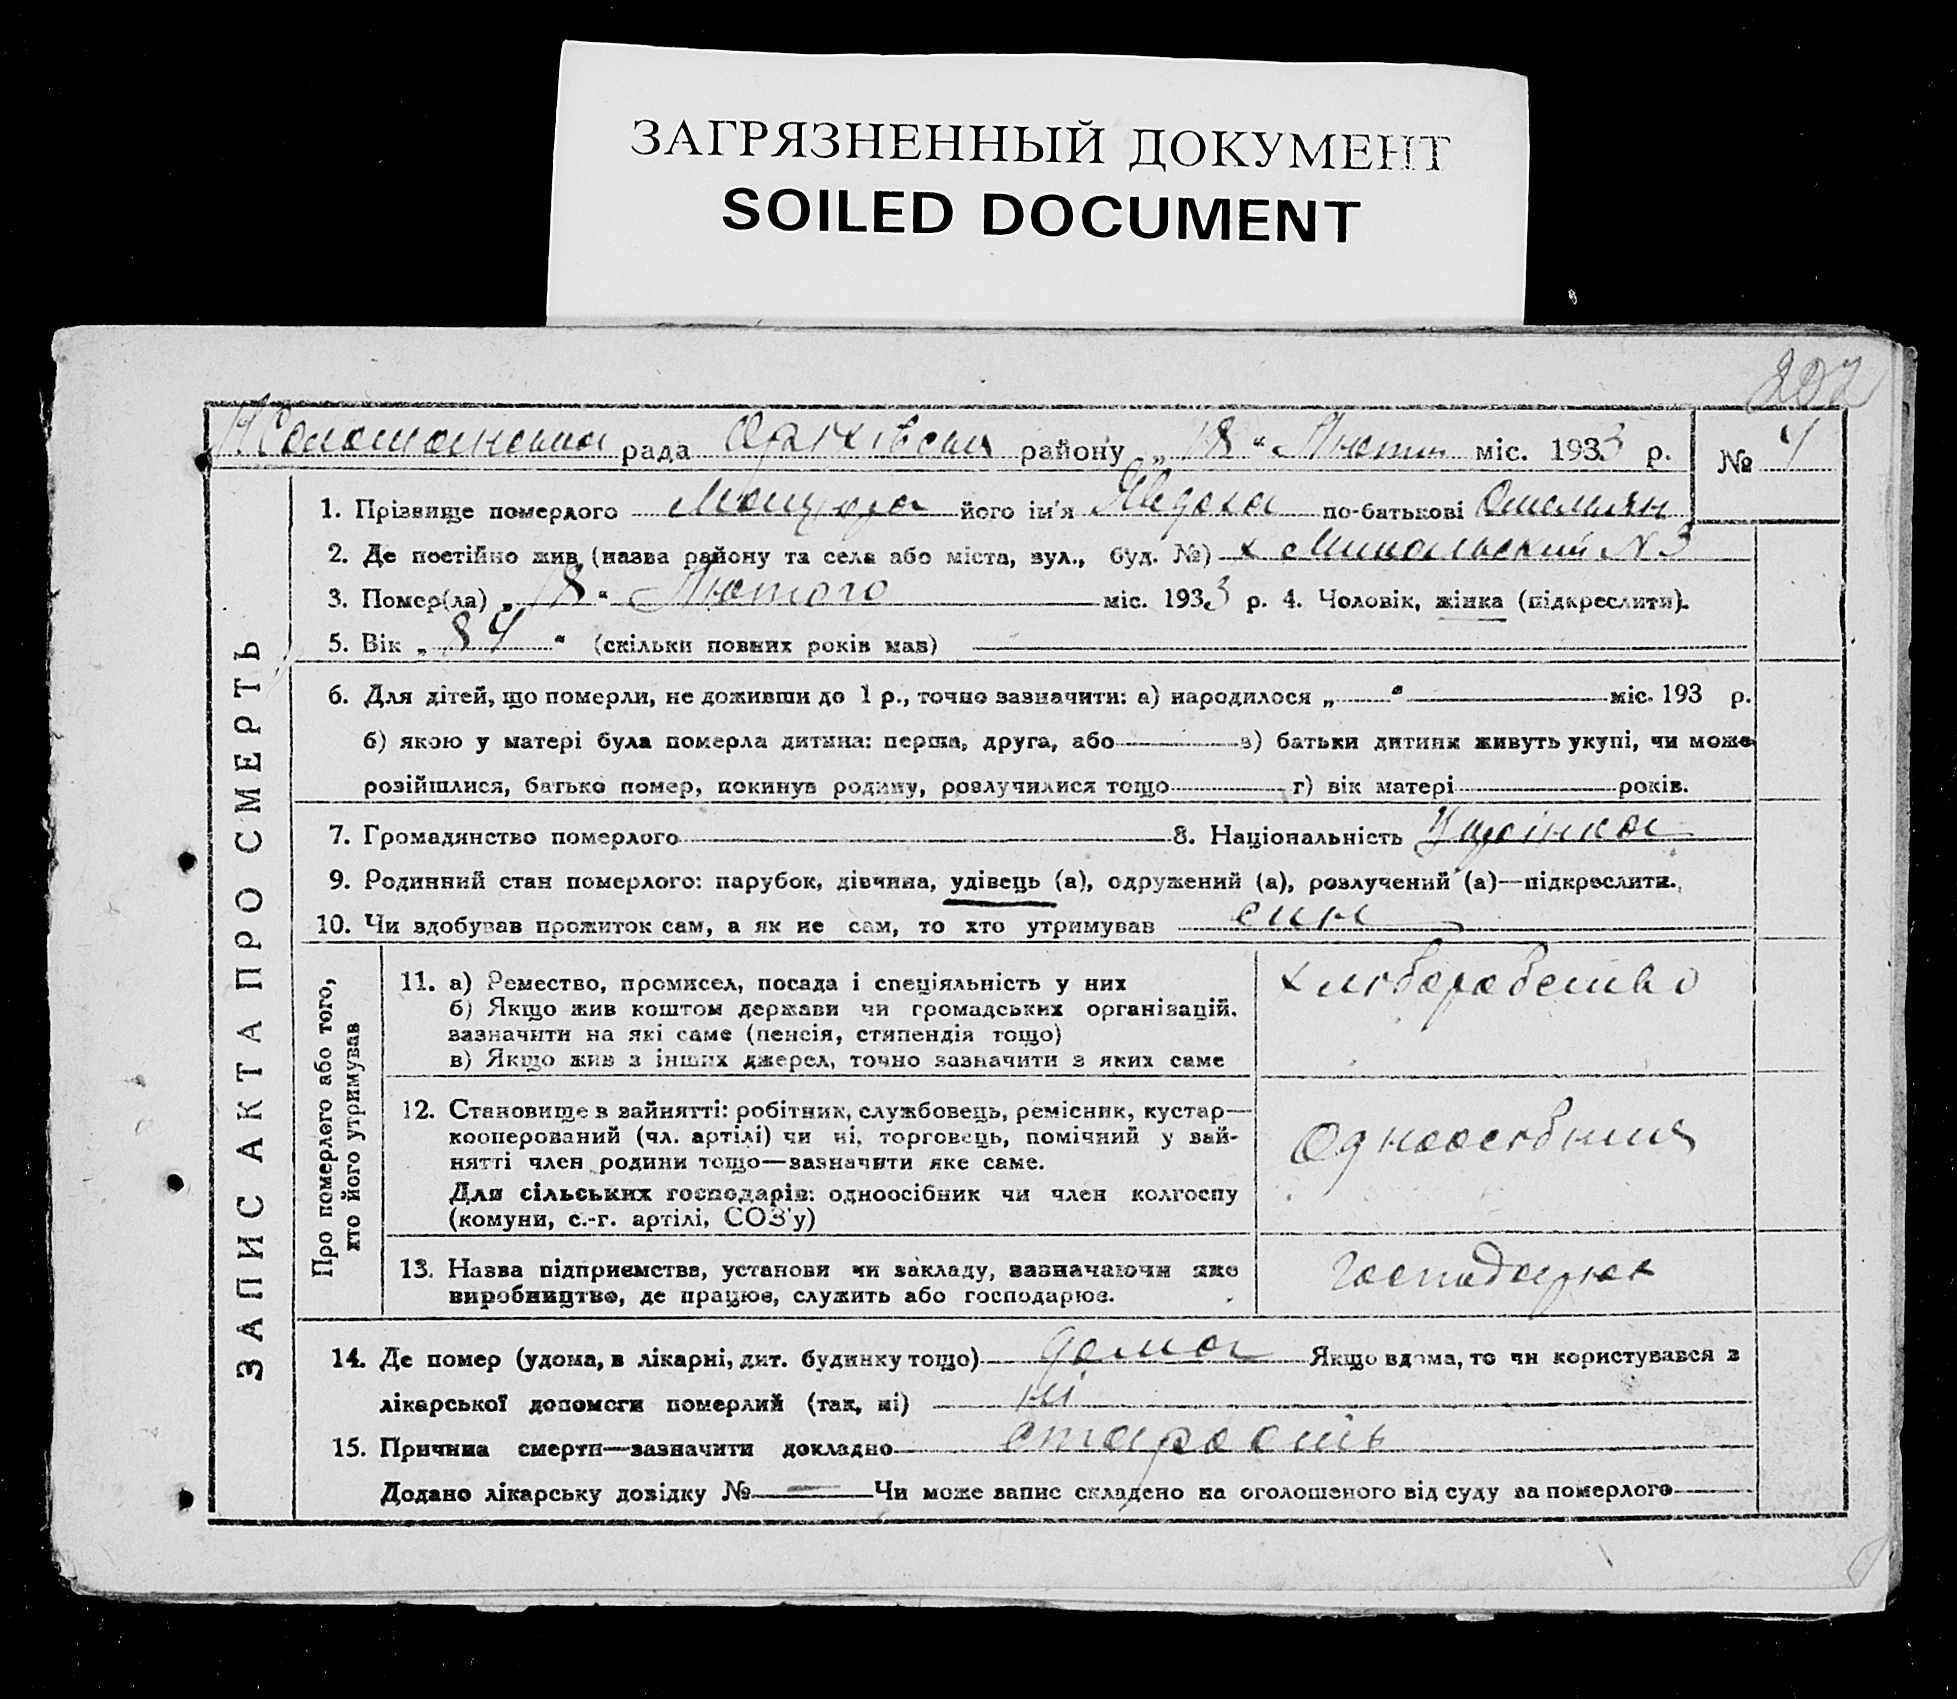 ЗАГРЯЗНЕННЫЙ ДОКУМЕНТ
SOILED DOCUMENT
202
рада районy „18" Лютий міс. 1933 р. № 4
ЗАПИС АКТА ПРО СМЕРТЬ
1. Прізвище померлого його ім'я Явдоха по-батькові Омельян
2. Де постійно жив (назва району та села або міста, вул., буд. №) х № 3
3. Помер(ла) „18" Лютого міс. 1933 р. 4. Чоловік, жінка (підкреслити).
5. Вік „84" (скільки повних років мав)
6. Для дітей, що померли, не доживши до 1 р., точно зазначити: а) народилося „ " міс. 193 р.
б) якою у матері була померла дитина: перша, друга, або в) батьки дитини живуть укупі, чи може
розійшлися, батько помер, покинув родину, розлучилися тощо г) вік матері років.
7. Громадянство померлого 8. Національність Українка
9. Родинний стан померлого: парубок, дівчина, удівець (а), одружений (а), розлучений (а)—підкреслити.
10. Чи здобував прожиток сам, а як не сам, то хто утримував син
Про померлого або того,
хто його утримував
11. а) Ремество, промисел, посада і спеціяльність у них
б) Якщо жив коштом держави чи громадських організацій.
зазначити на які саме (пенсія, стипендія тощо)
в) Якщо жив з інших джерел, точно зазначити з яких саме
хлюборобство
12. Становище в зайнятті: робітник, службовець, ремісник, кустар—
кооперований (чл. артілі) чи ні, торговець, помічний у зай-
нятті член родини тощо—зазначити яке саме.
Для сільських господарів: одноосібник чи член колгоспу
(комуни, с.-г. артілі, СОЗ'у)
13. Назва підприємства, установи чи закладу, зазначаючи яке
виробництво, де працює, служить або господарює.
14. Де помер (удома, в лікарні, дит. будинку тощо) дома Якщо вдома, то чи користувався з
лікарської допомоги померлий (так, ні) ні
15. Причина смерти—зазначити докладно старость
Додано лікарську довідку № — Чи може запис складено на оголошеного від суду за померлого